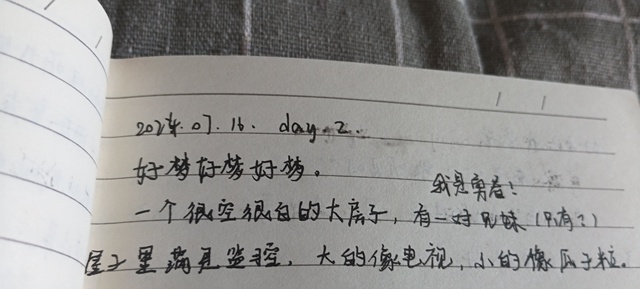 2024.07.16. day.2.
好梦好梦好梦。
我是勇者！
一个很空很白的大房子，有一对兄妹（只有？）
屋子里满是监控，大的像电视，小的像瓜子粒。